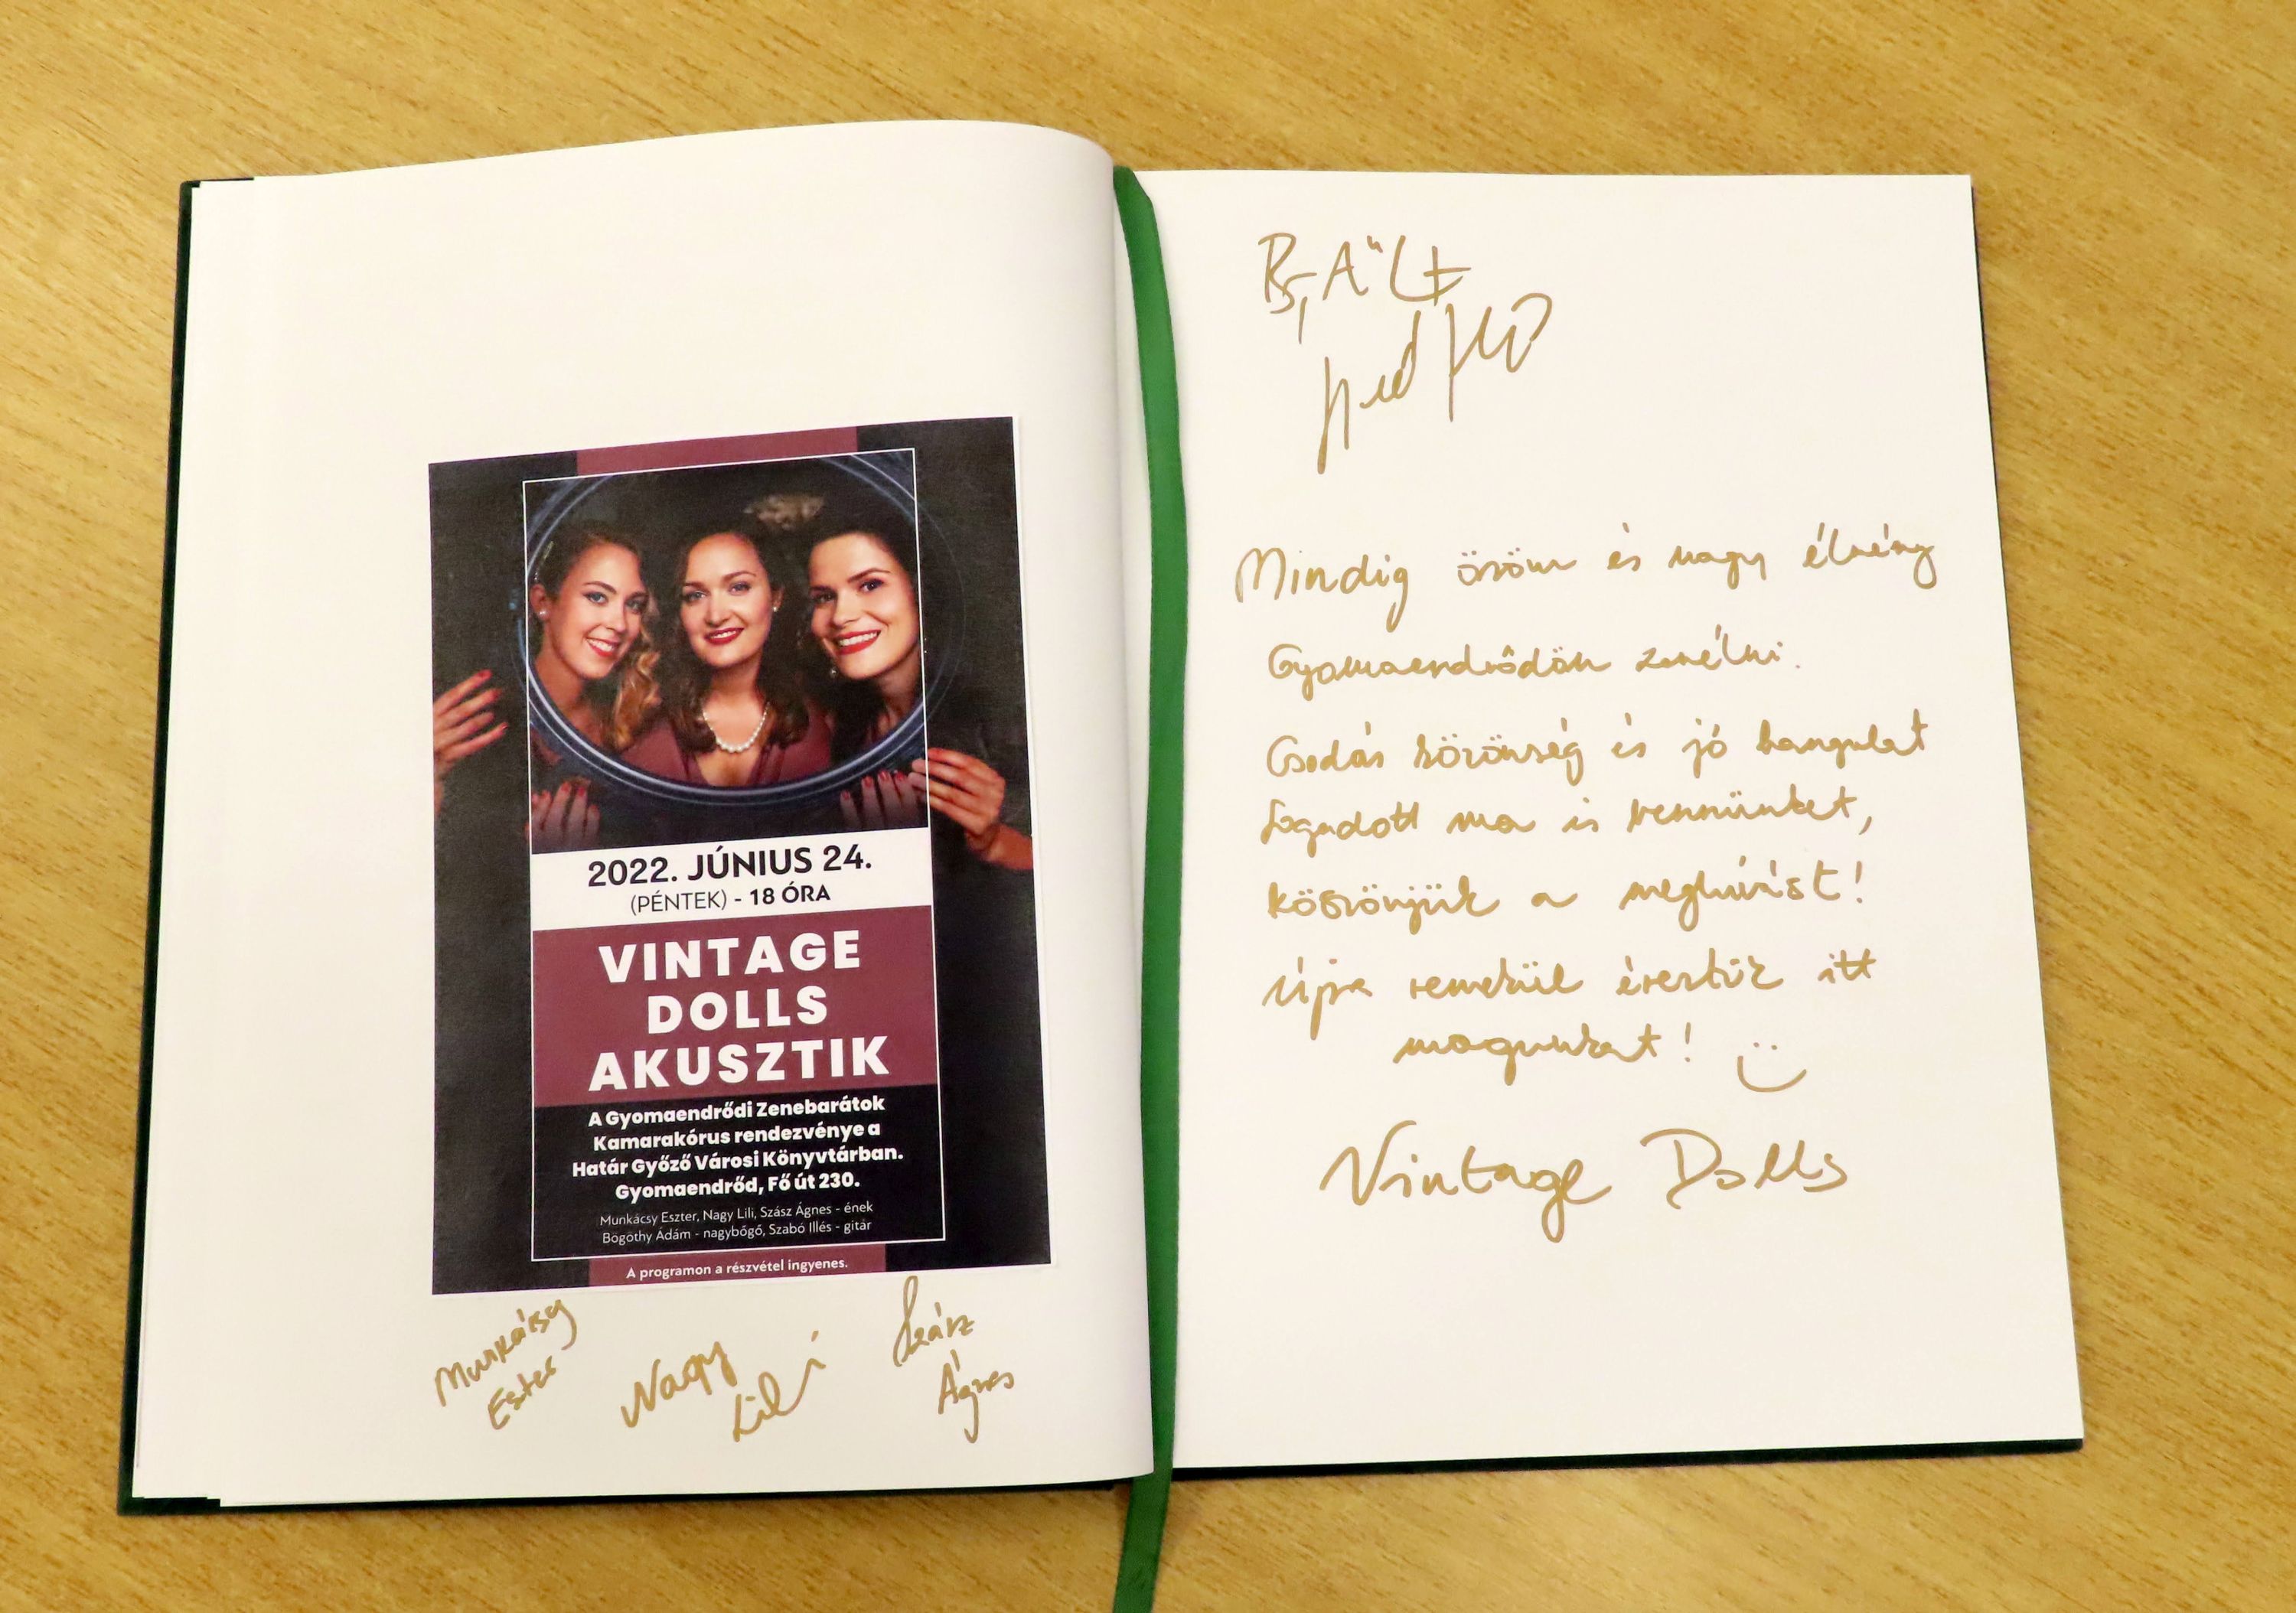 2022. JÚNIUS 24.
(PÉNTEK) - 18 ÓRA
VINTAGE
DOLLS
AKUSZTIK
A Gyomaendrődi Zenebarátok
Kamarakórus rendezvénye a
Határ Győző Városi Könyvtárban.
Gyomaendrőd, Fő út 230.
Munkácsy Eszter, Nagy Lili, Szász Ágnes - ének
Bögöthy Ádám - nagybőgő, Szabó Illés - gitár
A programon a részvétel ingyenes.
Munkácsy
Eszter
Nagy
Lili
Szász
Ágnes
Mindig öröm és nagy élmény
Gyomaendrődön zenélni.
Csodás közönség és jó hangulat
fogadott ma is bennünket,
köszönjük a meghívást!
Újra remekül éreztük itt
magunkat!
Vintage Dolls